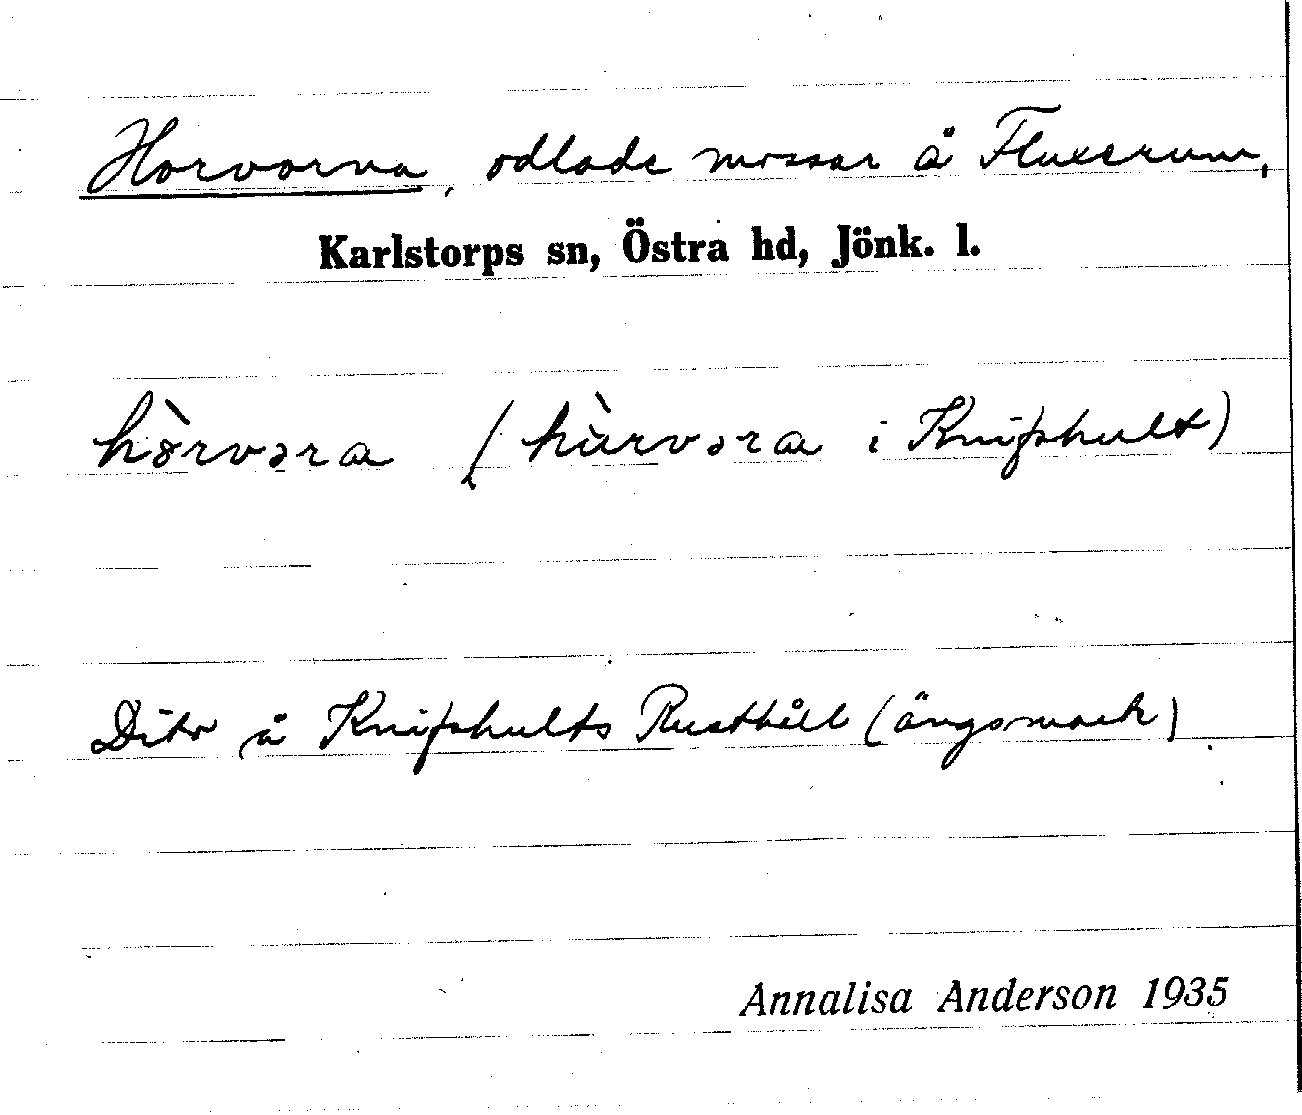 Horvorna, odlade mossar å Fluxerum,
Karlstorps sn, Östra hd, Jönk. l.
hòrvəra (hùrvəra i Knifshult)
Dito å Knifshults Rusthåll (ängsmark)
Annalisa Anderson 1935